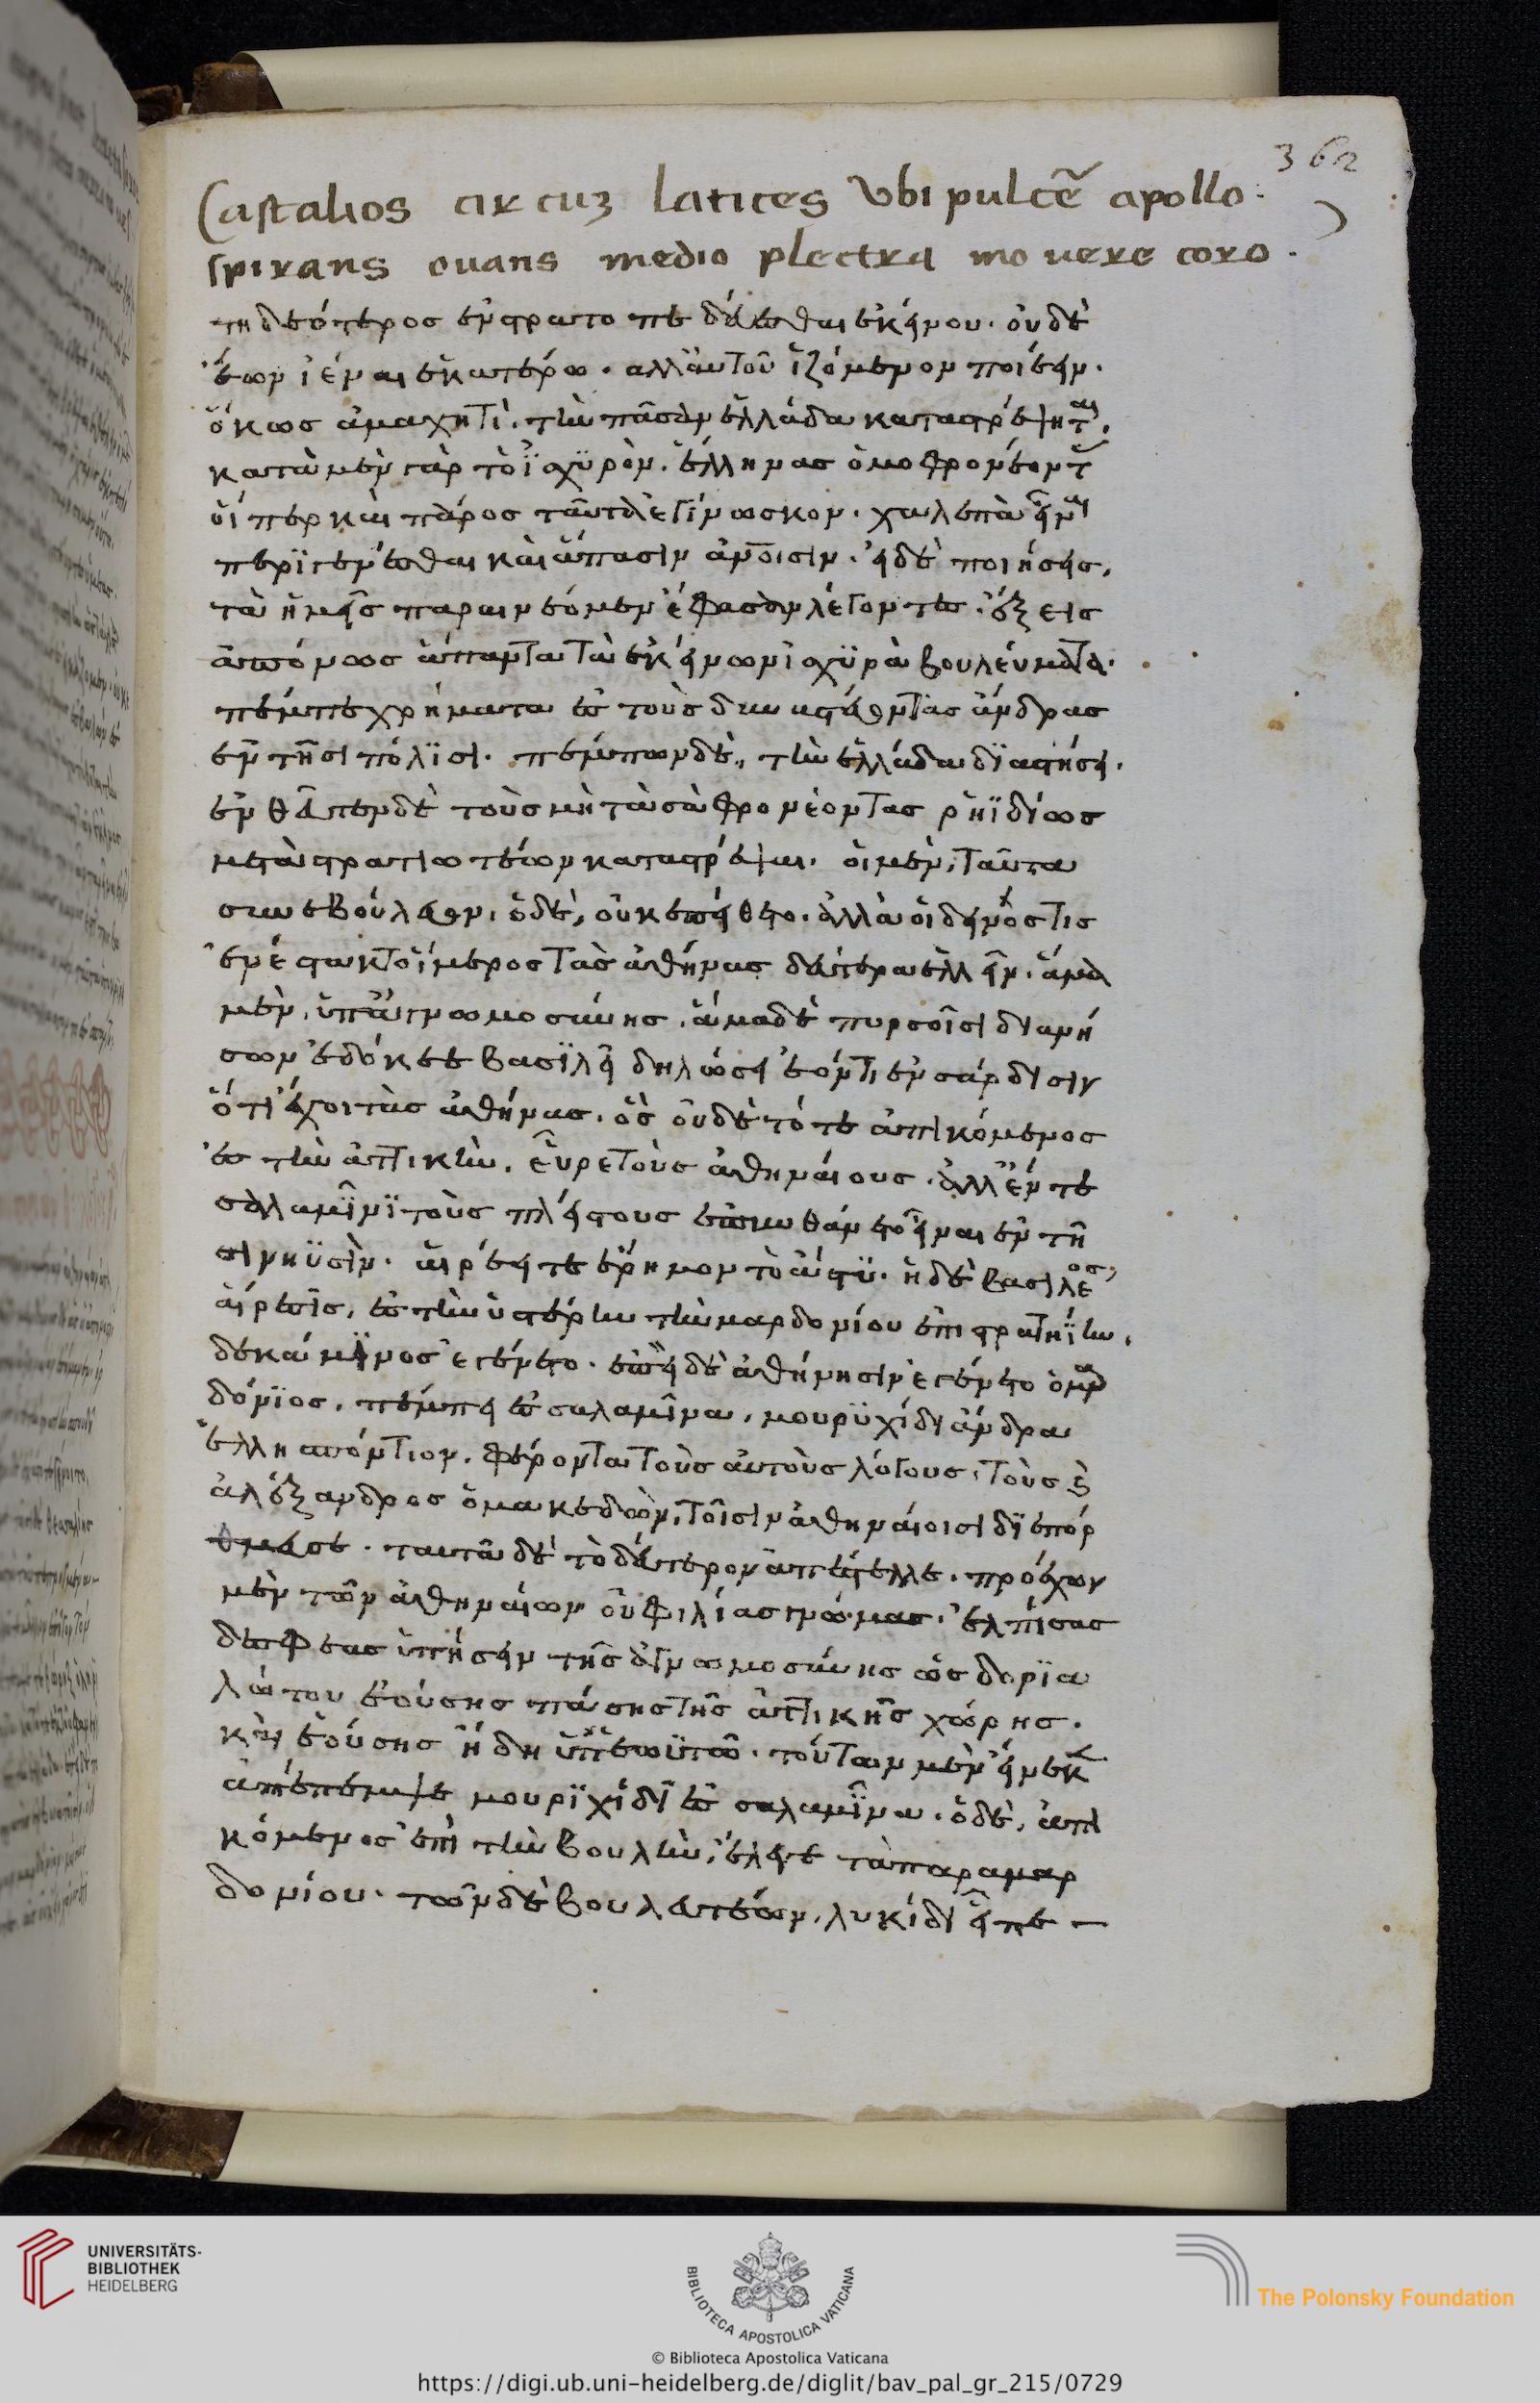 Castalios circuꝫ latices Vbi pulcẽ apollo:
spirans ovans medio plectra movere coro.
362
τηδεότερος ἐνστρατοπεδεύεσθαι ἐκείνου. οὐδὲ
ἔων ἰέναι ἑκαστέρω. ἀλλ' αὐτοῦ ἱζόμενον ποιέειν.
ὅκως ἀμαχητὶ, τὴν πᾶσαν ἑλλάδα καταστρέψηται.
κατὰ μὲν γὰρ τὸ ἰσχϋρὸν. ἕλληνας ὁμοφρονέοντας
οἵπερ καὶ πάρος ταυτὰ ἐγίνωσκον. χαλεπὰ εἶναι
περϊγενέσθαι καὶ ἅπασιν ἀνοισιν. εἰ δὲ ποιήσεις,
τὰ ἡμεῖς παραινέομεν ἔφασαν λέγοντες. ἕξεις
ἀπόνως ἅπαντα τὰ ἐκείνων ἰσχϋρὰ βουλεύματα.
πέμπε χρήματα ἐς τοὺς δυναστεύοντας ἄνδρας
ἐν τῆσι πόλϊσι. πέμπων δὲ, τὴν ἑλλάδα δϊαστήσει.
ἐνθεῦτεν δὲ τοὺς μὴ τὰ σὰ φρονέοντας ῥηϊδίως
μετὰ στρατιωτέων καταστρέψαι. οἱ μὲν, ταῦτα
συνεβούλευον, ὁ δὲ, οὐκ ἐπείθετο. ἀλλά οἱ δεινός τις
ἐνέστακτο ἵμερος τὰς ἀθήνας δεύτερα ἑλλεῖν. ἅμα
μὲν, ὑπ' ἀγνωμοσύνης. ἅμα δὲ πυρσοῖσι διανή
σων ἐδόκεε βασϊλεῖ δηλώσει ἐόντι ἐν σάρδισιν
ὅτι ἔχοι τὰς ἀθήνας. ὃς οὐδὲ τότε ἀπικόμενος
ἐς τὴν ἀττικὴν. εὗρε τοὺς ἀθηναίους. ἀλλ' ἔν τε
σαλαμῖνϊ τοὺς πλείστους ἐπυνθάνετο εἶναι ἐν τῆ
σι νηϋσὶν. αἱρέει τε ἔρημον τὸ ἄστϋ. ἡ δὲ βασιλέος,
αἵρεσις, ἐς τὴν ὑστέρην τὴν μαρδονίου ἐπιστρατηΐην.
δεκάμηνος ἐγένετο. ἐπεὶ δὲ ἀθήνησιν ἐγένετο ὁ μαρ
δόνϊος. πέμπει ἐς σαλαμῖνα, μουρϋχίδι ἄνδρα
ἑλλησπόντιον. φέροντα τοὺς αὐτοὺς λόγους, τοὺς καὶ
ἀλέξανδρος ὁ μακεδὼν, τοῖσιν ἀθηναίοισι δϊεπόρ
θμευσε. ταῦτα δὲ τὸ δεύτερον ἀπέστελλε. προέχων
μὲν τῶν ἀθηναίων οὐ φιλίας γνώμας. ἐλπίσας
δέ σφεας ὑπήσειν τῆς ἀγνωμοσύνης ὡς δορϊα
λώτου ἐούσης πάσης τῆς ἀττικῆς χώρης.
καὶ ἐούσης ἤδη ὑπ' ἑωϋτῶ. τούτων μὲν εἵνεκα
ἀπέπεμψε μουρϊχίδϊ ἐς σαλαμῖνα. ὁ δὲ, ἀπι
κόμενος ἐπὶ τὴν βουλὴν, ἔλεγε τὰ παρα μαρ
δονίου. τῶν δὲ βουλευτέων, λυκίδϊ εἶπε
UNIVERSITÄTS-
BIBLIOTHEK
HEIDELBERG
BIBLIOTECA APOSTOLICA VATICANA
The Polonsky Foundation
© Biblioteca Apostolica Vaticana
https://digi.ub.uni-heidelberg.de/diglit/bav_pal_gr_215/0729